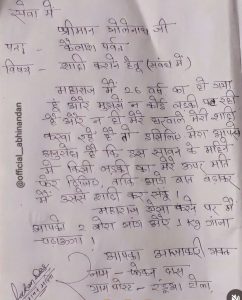 सेवा में
श्रीमान भोलेनाथ जी
कैलाश पर्वत
विषय - शादी करवाने हेतु (सबंध में)
महाराज में 26 वर्ष का हो गया
हूँ और मुझसे न कोई लड़की पट रही
है और न ही मेरे घरवाले मेरी शादी
करवा रहे है तो इसलिए मेरा आपसे
अनुरोध है कि इस सावन के महिने
में किसी लड़की का मेरे ऊपर मति
फेर दिजिए, ताकि आगे बात बढ़ाकर
में उससे शादी कर सकूँ।
महाराज ऐसा करने पर में
आपको 2 बोरा भांग और 1 kg गांजा
चढ़ाऊंगा।
आपका आज्ञाकारी भक्त
नाम -
ग्राम पोस्ट -
@official_abhinandan